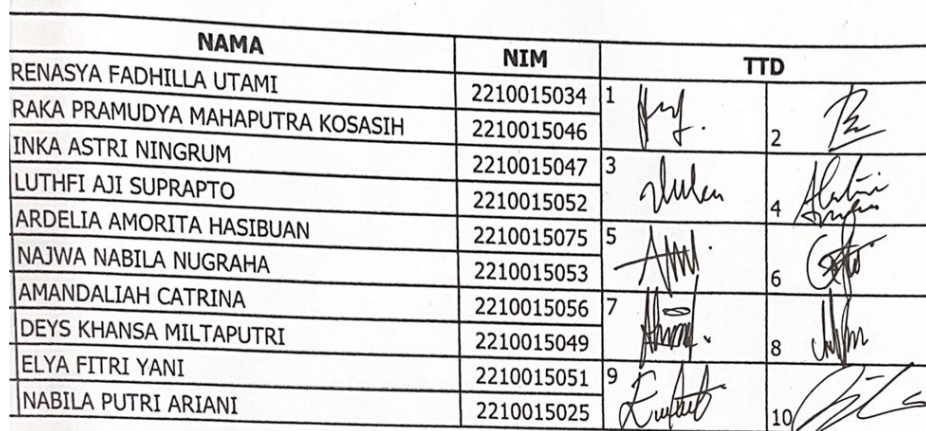 NAMA NIM TTD
RENASYA FADHILLA UTAMI 2210015034 1
RAKA PRAMUDYA MAHAPUTRA KOSASIH 2210015046 2
INKA ASTRI NINGRUM 2210015047 3
LUTHFI AJI SUPRAPTO 2210015052 4
ARDELIA AMORITA HASIBUAN 2210015075 5
NAJWA NABILA NUGRAHA 2210015053 6
AMANDALIAH CATRINA 2210015056 7
DEYS KHANSA MILTAPUTRI 2210015049 8
ELYA FITRI YANI 2210015051 9
NABILA PUTRI ARIANI 2210015025 10